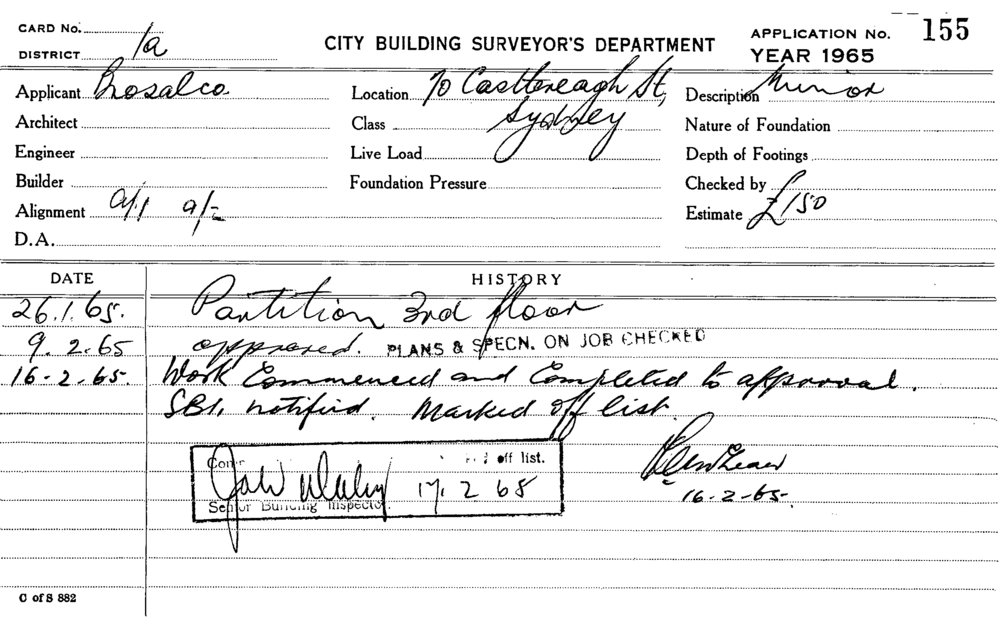 CARD No. 1a
DISTRICT
CITY BUILDING SURVEYOR'S DEPARTMENT
APPLICATION No. 155
YEAR 1965
Applicant Prosalco
Location 70 Castlereagh St,
Sydney
Description Minor
Architect
Class
Nature of Foundation
Engineer
Live Load
Depth of Footings
Builder
Foundation Pressure
Checked by
Alignment
Estimate £150
D.A.
DATE HISTORY
26.1.65. Partition 3rd floor
9.2.65 approved. PLANS & SPECN. ON JOB CHECKED
16-2-65. Work Commenced and Completed to approval.
SBI. notified. Marked off list.
off list.
17. 2 65
Senior Building Inspector
16-2-65.
C of S 882